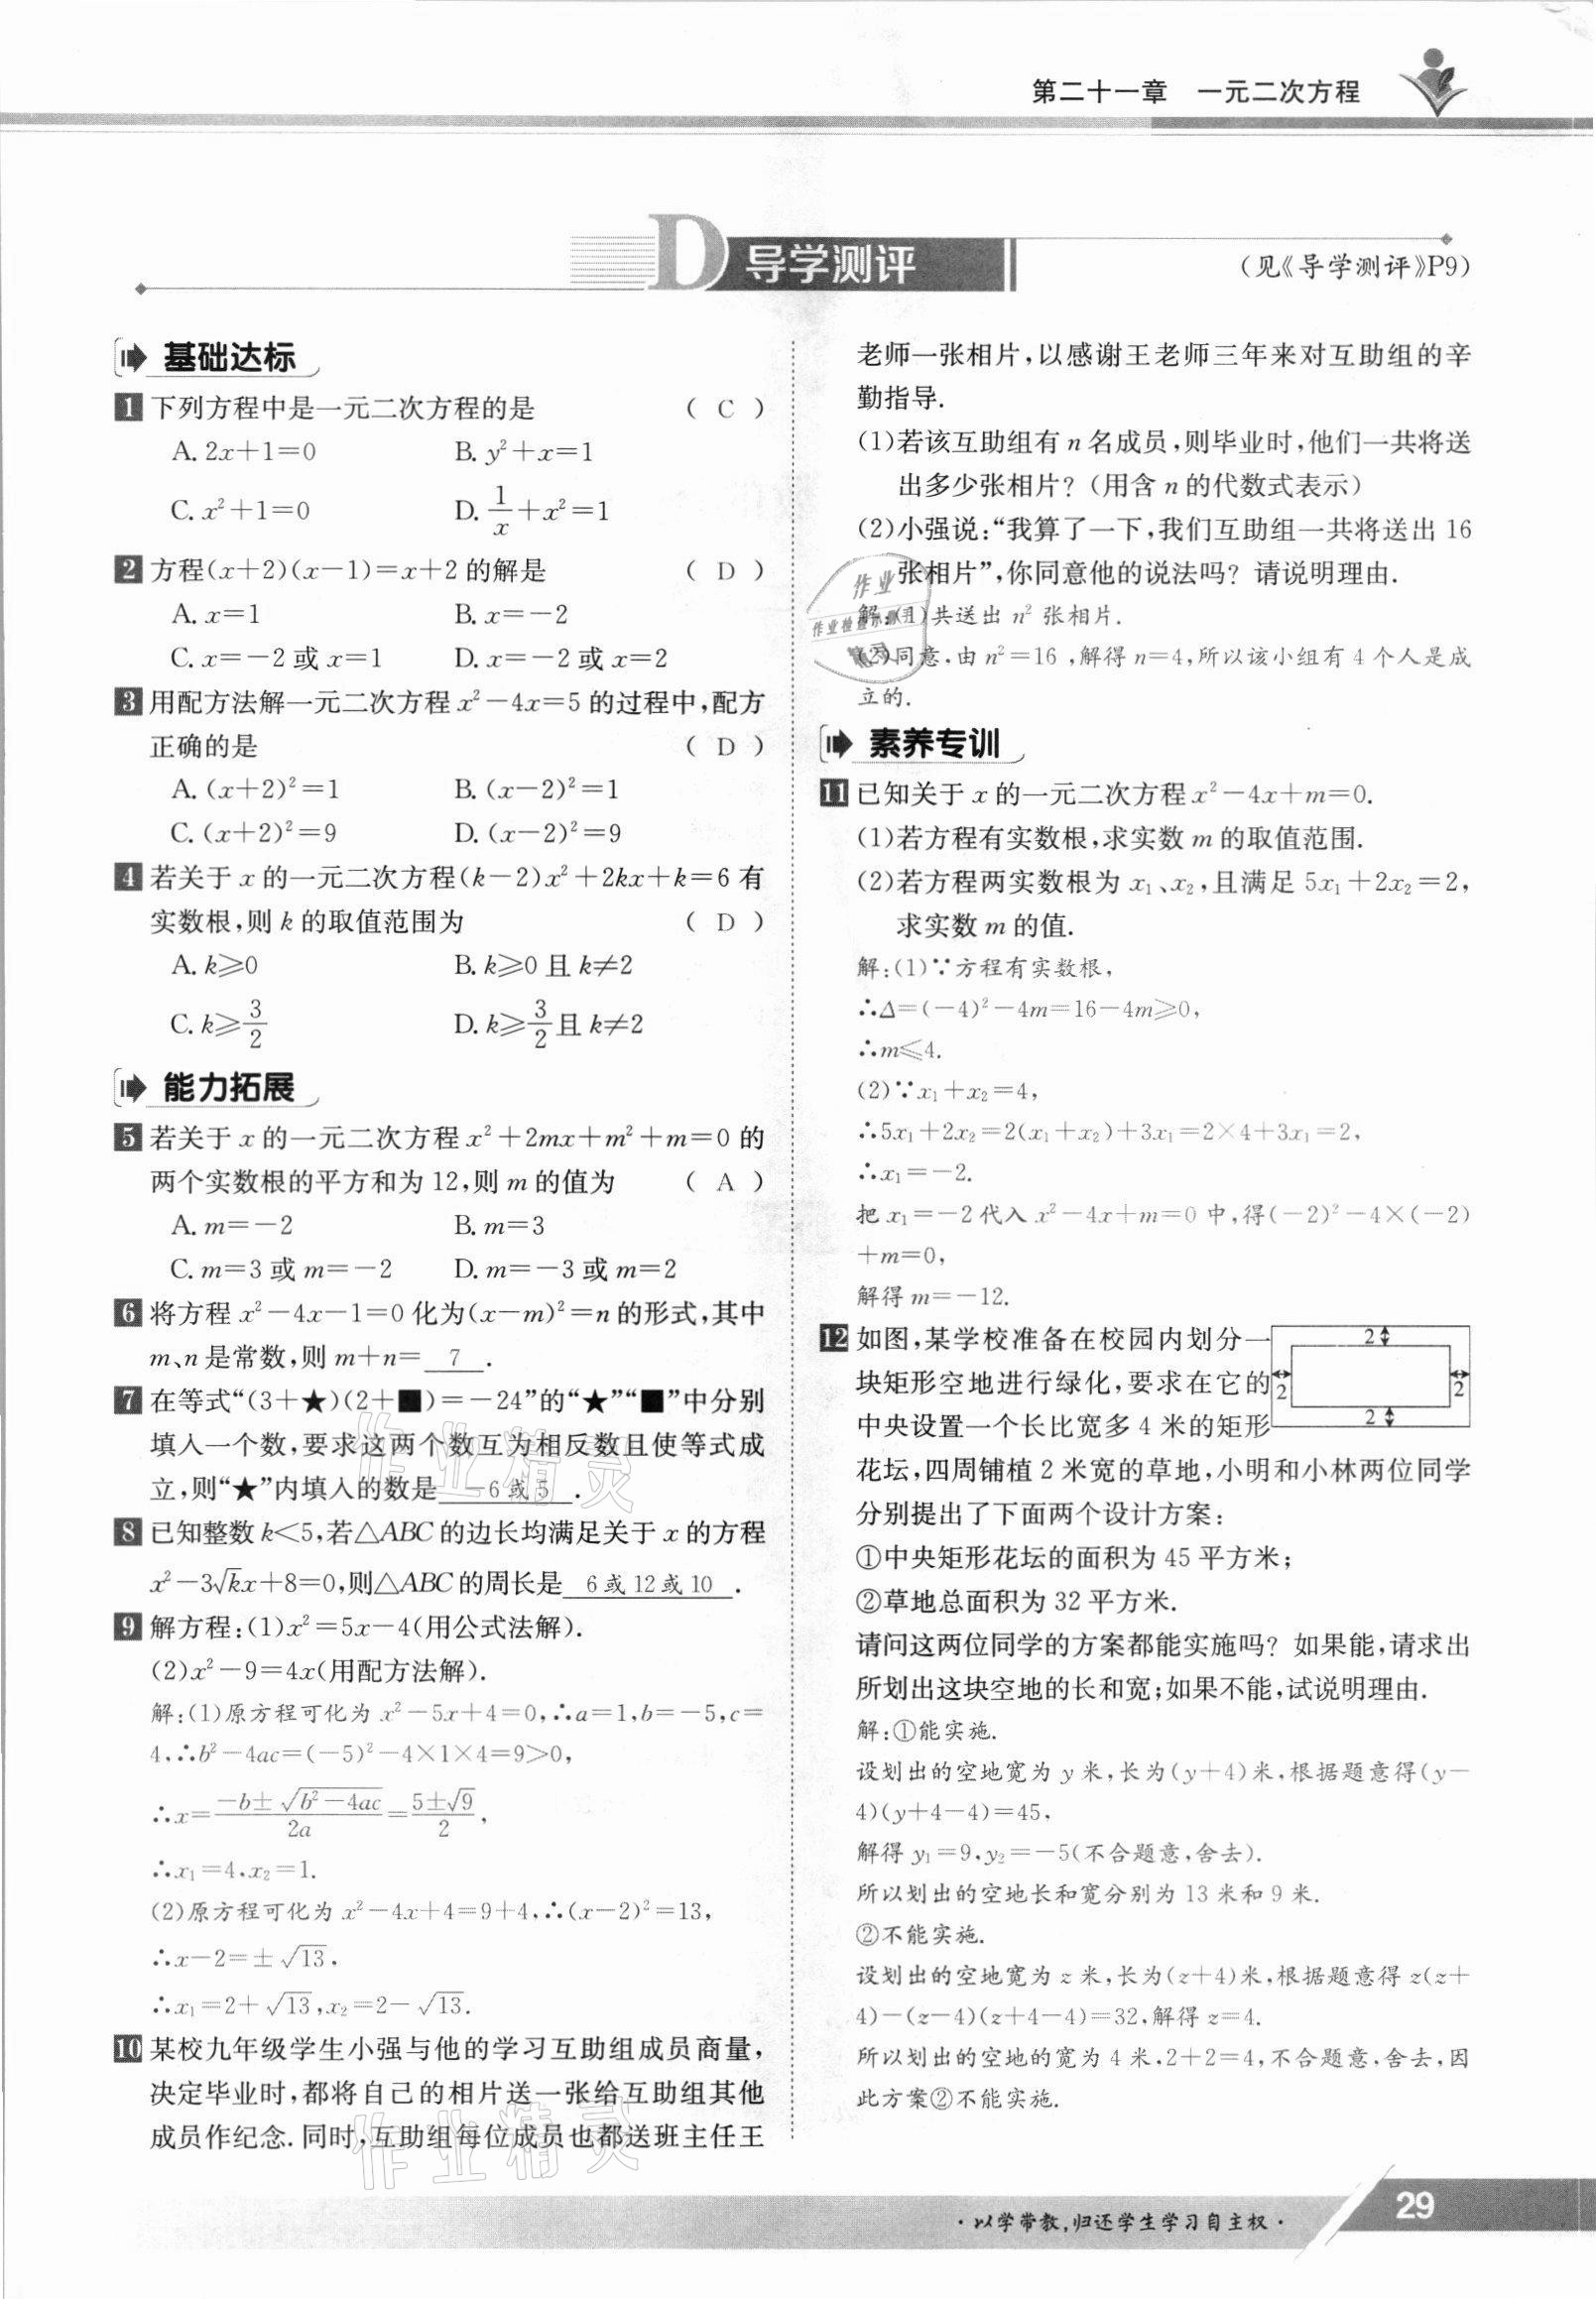 第二十一章 一元二次方程
D 导学测评
(见《导学测评》P9)
基础达标
1 下列方程中是一元二次方程的是 ( C )
A. 2x+1=0 B. y²+x=1
C. x²+1=0 D. 1/x+x²=1
2 方程(x+2)(x-1)=x+2的解是 ( D )
A. x=1 B. x=-2
C. x=-2或x=1 D. x=-2或x=2
3 用配方法解一元二次方程x²-4x=5的过程中,配方
正确的是 ( D )
A. (x+2)²=1 B. (x-2)²=1
C. (x+2)²=9 D. (x-2)²=9
4 若关于x的一元二次方程(k-2)x²+2kx+k=6有
实数根,则k的取值范围为 ( D )
A. k⩾0 B. k⩾0且k≠2
C. k⩾3/2 D. k⩾3/2且k≠2
能力拓展
5 若关于x的一元二次方程x²+2mx+m²+m=0的
两个实数根的平方和为12,则m的值为 ( A )
A. m=-2 B. m=3
C. m=3或m=-2 D. m=-3或m=2
6 将方程x²-4x-1=0化为(x-m)²=n的形式,其中
m、n是常数,则m+n= 7 .
7 在等式“(3+★)(2+■)=-24”的“★”“■”中分别
填入一个数,要求这两个数互为相反数且使等式成
立,则“★”内填入的数是 -6或5 .
8 已知整数k<5,若△ABC的边长均满足关于x的方程
x²-3√kx+8=0,则△ABC的周长是 6或12或10 .
9 解方程:(1)x²=5x-4(用公式法解).
(2)x²-9=4x(用配方法解).
解:(1)原方程可化为x²-5x+4=0,∴a=1,b=-5,c=
4,∴b²-4ac=(-5)²-4×1×4=9>0,
∴x=(-b±√(b²-4ac))/2a=(5±√9)/2,
∴x₁=4,x₂=1.
(2)原方程可化为x²-4x+4=9+4,∴(x-2)²=13,
∴x-2=±√13,
∴x₁=2+√13,x₂=2-√13.
10 某校九年级学生小强与他的学习互助组成员商量,
决定毕业时,都将自己的相片送一张给互助组其他
成员作纪念.同时,互助组每位成员也都送班主任王
老师一张相片,以感谢王老师三年来对互助组的辛
勤指导.
(1)若该互助组有n名成员,则毕业时,他们一共将送
出多少张相片?(用含n的代数式表示)
(2)小强说:“我算了一下,我们互助组一共将送出16
张相片”,你同意他的说法吗?请说明理由.
解:(1)共送出n²张相片.
(2)同意,由n²=16,解得n=4,所以该小组有4个人是成
立的.
素养专训
11 已知关于x的一元二次方程x²-4x+m=0.
(1)若方程有实数根,求实数m的取值范围.
(2)若方程两实数根为x₁、x₂,且满足5x₁+2x₂=2,
求实数m的值.
解:(1)∵方程有实数根,
∴Δ=(-4)²-4m=16-4m⩾0,
∴m⩽4.
(2)∵x₁+x₂=4,
∴5x₁+2x₂=2(x₁+x₂)+3x₁=2×4+3x₁=2,
∴x₁=-2.
把x₁=-2代入x²-4x+m=0中,得(-2)²-4×(-2)
+m=0,
解得m=-12.
12 如图,某学校准备在校园内划分一
块矩形空地进行绿化,要求在它的
中央设置一个长比宽多4米的矩形
2
2
2
2
花坛,四周铺植2米宽的草地,小明和小林两位同学
分别提出了下面两个设计方案:
①中央矩形花坛的面积为45平方米;
②草地总面积为32平方米.
请问这两位同学的方案都能实施吗?如果能,请求出
所划出这块空地的长和宽;如果不能,试说明理由.
解:①能实施.
设划出的空地宽为y米,长为(y+4)米,根据题意得(y-
4)(y+4-4)=45,
解得y₁=9,y₂=-5(不合题意,舍去).
所以划出的空地长和宽分别为13米和9米.
②不能实施.
设划出的空地宽为z米,长为(z+4)米,根据题意得z(z+
4)-(z-4)(z+4-4)=32,解得z=4.
所以划出的空地的宽为4米,2+2=4,不合题意,舍去,因
此方案②不能实施.
作业精灵
作业精灵
·以学带教,归还学生学习自主权·
29